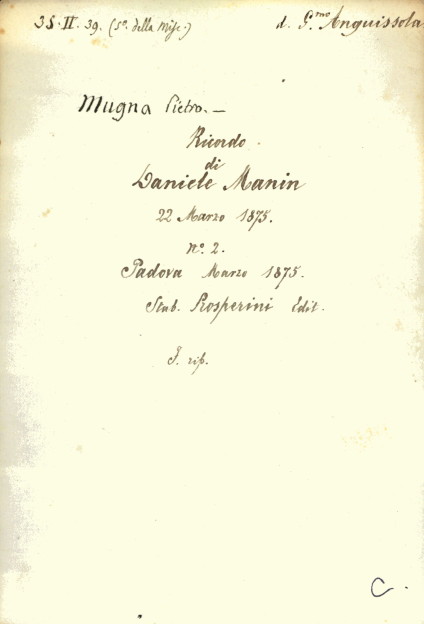 35. II. 39. (5a. della Misc.) d. G.mo Anguissola
Mugna Pietro. —
Ricordo
di
Daniele Manin
22 Marzo 1875.
No. 2.
Padova Marzo 1875.
Stab. Prosperini Edit.
C.